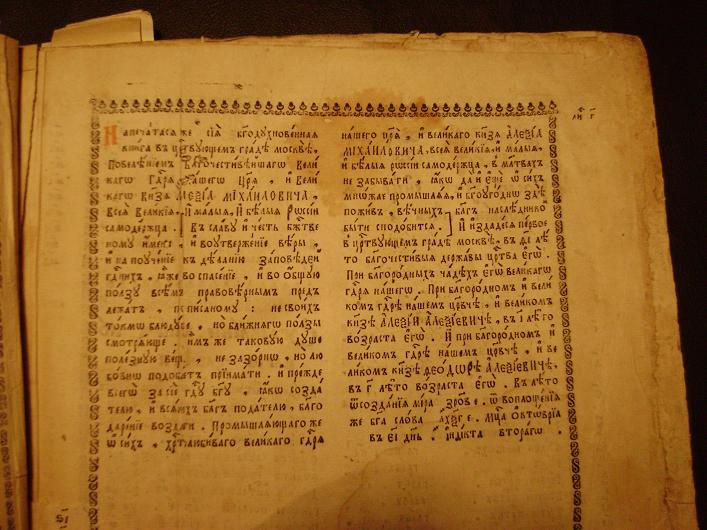 Напеча́тася же сїѧ̀ бг҃одꙋхнове́нная
книга въ црⷭ҇твꙋющемъ гра́дѣ москвѣ̀,
Повелѣ́нїемъ Бл҃гочести́вѣйшагѡ Вели́
кагѡ Гдⷭ҇рѧ на́шегѡ Цр҃ѧ̀, и҆ Вели́
кагѡ Кн҃зѧ Алеѯі́а Міха́иловича,
Всеѧ̀ Вели́кїѧ, И҆ Ма́лыѧ, И҆ Бѣ́лыѧ Рѡссі́и
самоде́ржца. Въ сла́вꙋ и҆ че́сть бж҃тве
ному и҆́мени, и҆ воутверже́нїе вѣ́ры,
и҆ на поуче́нїе къ дѣ́ланїю за́повѣдей
гдⷭ҇нихъ, ꙗ҆́же во спасе́нїе, и҆ во ѻ҆́бщꙋю
по́лзꙋ всѣ́мъ правовѣ́рнымъ пред̾
лежа́тъ, пси́саномꙋ : не свои́хъ
то́кмѡ блюдꙋ́ще, но бли́жнѧгѡ по́лзы
смотрѧ́юще. и҆́мже такову́ю дꙋше
поле́знꙋю ве́щь, не зазо́рнѡ, но лю
бо́внѡ подоба́етъ прїима́ти. и҆ пре́жде
всегѡ̀ за сїѐ гдⷭ҇у бг҃ꙋ, ꙗ҆́кѡ созда́
телю, и҆ всѧ́кихъ бл҃гъ пода́телю, благо
даре́нїе возда́ѧти. Промышлѧ́ющаго же
ѡ҆ си́хъ, хрⷭ҇толюби́ваго вели́каго гдⷭ҇рѧ
на́шего цр҃ѧ̀, и҆ вели́каго кн҃зѧ Алеѯі́а
Міха́иловича, всеѧ̀ вели́кїѧ, и҆ ма́лыѧ,
и҆ бѣ́лыѧ рѡссі́и самоде́ржца, в̾ мл҃твахъ
не забыва́ти, ꙗ҆́кѡ да́ и҆ є҆щѐ ѡ҆ си́хъ
мно́жае промышлѧ́ѧ, и҆ бг҃оуго́днѡ здѣ̀
пожи́въ, вѣ́чныхъ бл҃гъ наслѣ́дникъ
бы́ти сподо́битсѧ. И҆ и҆зда́десѧ пе́рвое
в̾ црⷭ҇твꙋющемъ гра́дѣ москвѣ̀, въ лѣ́
то благочести́выѧ держа́вы црⷭ҇тва є҆гѡ̀.
При благоро́дныхъ ча́дѣхъ є҆гѡ̀ вели́кагѡ
гдⷭ҇рѧ на́шегѡ. При благоро́дномъ и҆ вели́
комъ гдⷭ҇рѣ на́шемъ цр҃вчѣ, и҆ вели́комъ
кн҃зѣ Алеѯі́и Алеѯі́евичѣ, въ і҃ лѣ́то
во́зраста є҆гѡ̀. И҆ при благоро́дномъ и҆
вели́комъ гдⷭ҇рѣ нашемъ цр҃вчѣ, и҆ ве
ли́комъ кн҃зѣ Ѳео́дорѣ Алеѯі́евичѣ,
въ г҃ лѣ́то во́зраста є҆гѡ̀. В̾ лѣ́то
ѿ созда́нїѧ мі́ра ҂зрое. ѿ воплоще́нїѧ
же бг҃а сло́ва Мцⷭ҇а Ѻ҆ктѡ́врїа
въ е҃і дн҃ь. І҆ндїкта втора́гѡ.